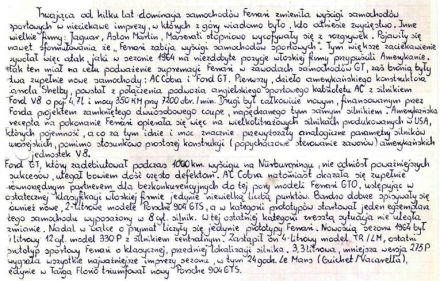 Trwająca od kilku lat dominacja samochodów Ferrari zmieniła wyścigi samochodów
sportowych w nieciekawe imprezy, w których z góry wiadomo było, kto odniesie zwycięstwo. Inne
wielkie firmy: Jaguar, Aston Martin, Maserati stopniowo wycofywały się z rozgrywek. Pojawiły się
nawet sformułowania że „Ferrari zabija wyścigi samochodów sportowych". Tym większe zaciekawienie
wywołał więc atak, jaki w sezonie 1964 na niezdobyte pozycje włoskiej firmy przypuścili Amerykanie.
Atak ten miał na celu podważenie supremacji Ferrari w zawodach samochodów GT, zaś bronią były
dwa zupełnie nowe samochody: AC Cobra i Ford GT. Pierwszy, dzieło amerykańskiego konstruktora,
Shelby, powstał z połączenia podwozia angielskiego sportowego kabrioletu AC z silnikiem
Ford V8 o poj 4,7 l i mocy 350 KM przy 7200 obr./min. Drugi był całkowicie nowym, finansowanym przez
Forda projektem zamkniętego dwuosobowego coupe, napędzanego tym samym silnikiem. Amerykańska
recepta na pokonanie Ferrari opierała się więc na wielkolitrażowych silnikach produkowanych w USA,
których pojemność, a co za tym idzie i moc znacznie przewyższały analogiczne parametry silników
włoskich, pomimo stosunkowo prostej konstrukcji (popychaczowe sterowanie zaworów) amerykańskich
jednostek V8.
Ford GT, który zadebiutował podczas 1000 km wyścigu na Nürburgringu, nie odniósł poważniejszych
sukcesów, ulegał bowiem dość często defektom. AC Cobra natomiast okazała się zupełnie
równorzędnym partnerem dla bezkonkurencyjnych do tej pory modeli Ferrari GTO, ustępując w
ostatecznej klasyfikacji włoskiej firmie jedynie niewielką liczbą punktów. Bardzo dobrze spisywały się
również nowe, 2-litrowe modele Porsche 904 GTS, a w kategorii prototypów startował jeden egzemplarz
tego samochodu wyposażony w 8 cyl. silnik. W tej ostatniej kategorii zresztą sytuacja nie uległa
zmianie. Nadal w walce o prymat liczyły się jedynie prototypy Ferrari. Nowością sezonu 1964 był
4 litrowy 12 cyl. model 330 P z silnikiem centralnym. Zastąpił on 4-litrowy model TR/LM, ostatni
prototyp sportowy Ferrari o klasycznej, przedniej lokalizacji silnika. 3,3 litrowa, mniejsza wersja 275 P
wygrała wszystkie najważniejsze imprezy sezonu, w tym 24 godz. Le Mans (Guichet/Vaccarella),
jedynie w Targa Florio triumfował nowy Porsche 904 GTS.